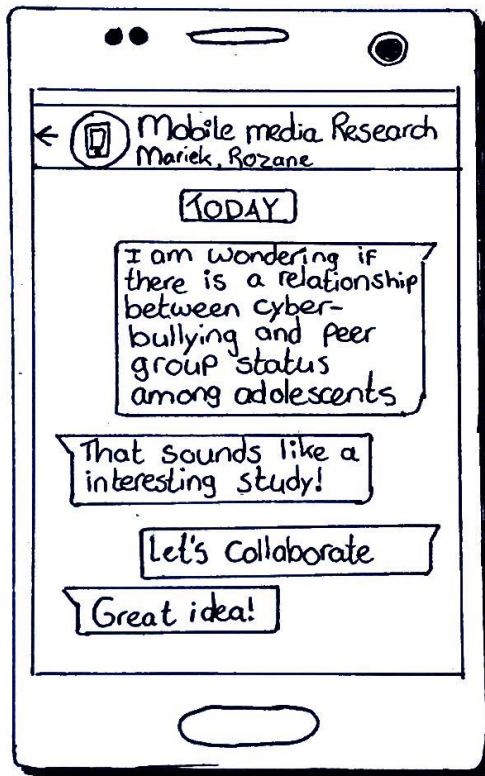 Mobile media Research
Mariek, Rozane
TODAY
I am wondering if
there is a relationship
between cyber-
bullying and peer
group status
among adolescents
That sounds like a
interesting study!
Let's collaborate
Great idea!